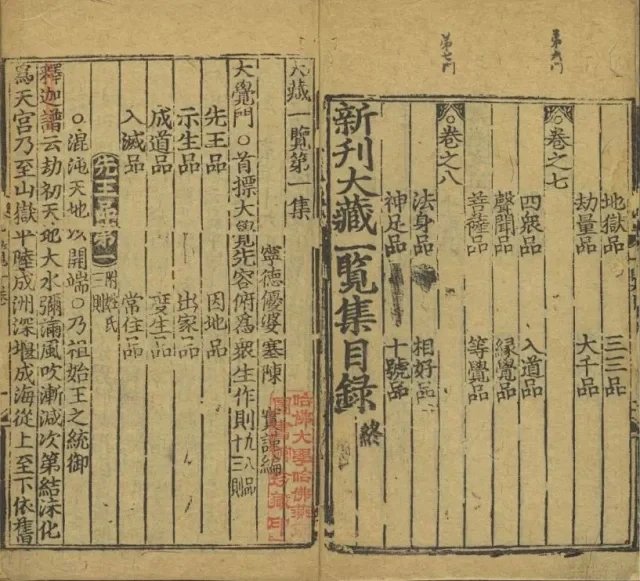 第六門
第七門
地獄品 三三品
劫量品 大千品
卷之七
四眾品 入道品
聲聞品 緣覺品
菩薩品 等覺品
卷之八
法身品 相好品
神足品 十號品
新刊大藏一覽集目錄 終
大藏一覽第一集
寧德優婆塞陳 實謹編
大覺門○首標大覺先容俯爲眾生作則凡八品十三則
先王品 因地品
示生品 出家品
成道品 度生品
入滅品 常住品
先王品第一 附姓氏 三則
○混沌天地以開端○乃祖始王之統御
釋迦譜云劫初天地大水彌滿風吹漸減次第結沫化
爲天宮乃至山嶽平陸成洲深壍成海從上至下依舊
哈佛大學哈佛燕
圖書館珍藏印